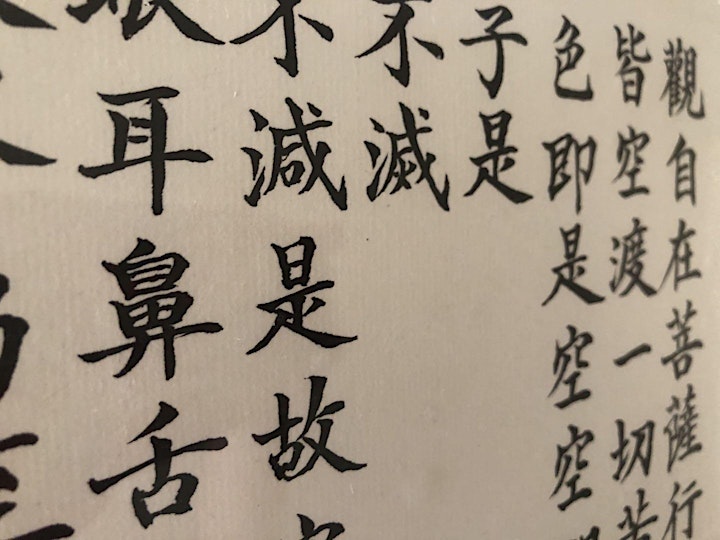 觀自在菩薩行
皆空渡一切苦
色即是空空
子是
不滅
不減是故
眼耳鼻舌